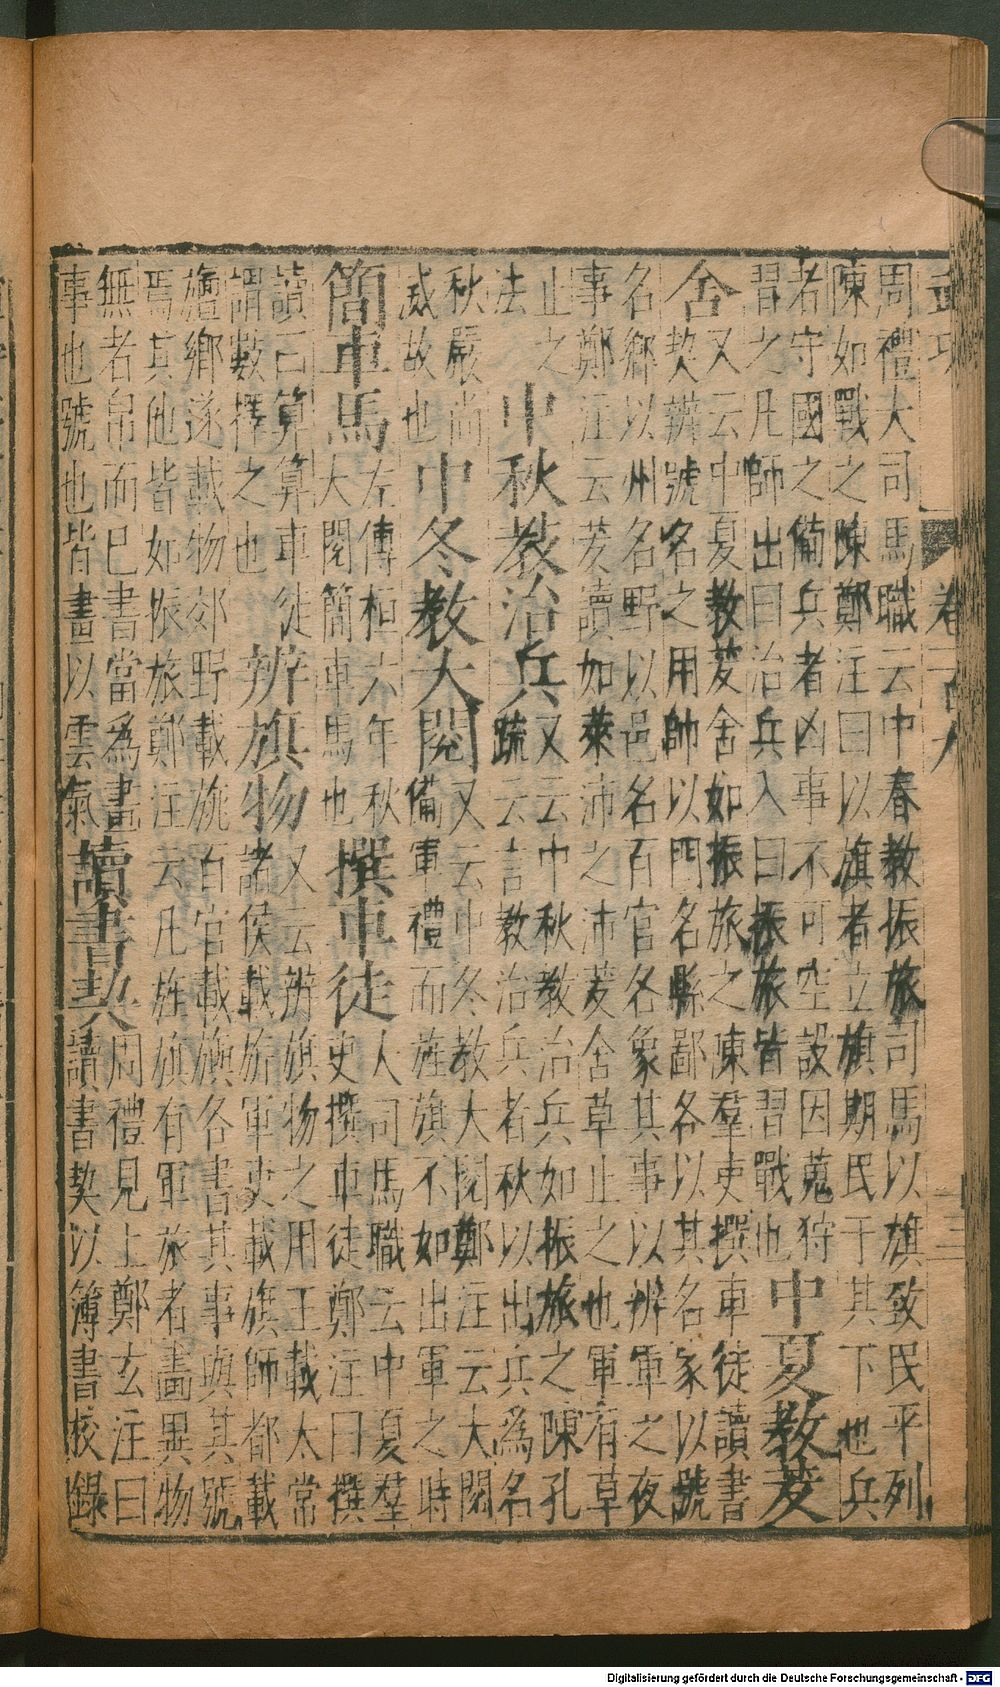 周禮大司馬職云中春教振旅司馬以旗致民平列
陳如戰之陳鄭注曰以旗者立旗期民于其下也兵
者守國之備兵者凶事不可空設因蒐狩
習之凡師出曰治兵入曰振旅皆習戰也
中夏教茇
舍
又云中夏教茇舍如振旅之陳羣吏撰車徒讀書
契辨號名之用帥以門名縣鄙各以其名家以號
名鄉以州名野以邑名百官名象其事以辨軍之夜
事鄭注云茇讀如萊沛之沛茇舍草止之也軍有草
止之
法
中秋教治兵
又云中秋教治兵如振旅之陳孔
疏云言教治兵者秋以出兵為名
秋嚴尚
威故也
中冬教大閱
又云中冬教大閱鄭注云大閱
備軍禮而旌旗不如出軍之時
簡車馬
左傳桓六年秋
大閱簡車馬也
撰車徒
人司馬職云中夏羣
吏撰車徒鄭注曰撰
讀曰算算車徒
謂數擇之也
辨旗物
又云辨旗物之用王載太常
諸侯載旂軍吏載旗師都載
旜鄉遂載物郊野載旐百官載旟各書其事與其號
焉其他皆如振旅鄭注云凡旌旗有軍旅者畫異物
無者帛而已書當為畫
事也號也皆畫以雲氣
讀書契
周禮見上鄭玄注曰
讀書契以簿書校錄
Digitalisierung gefördert durch die Deutsche Forschungsgemeinschaft - DFG